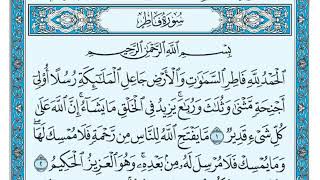 سُورَةُ فَاطِرٍ
بِسْمِ ٱللَّهِ ٱلرَّحْمَٰنِ ٱلرَّحِيمِ
ٱلْحَمْدُ لِلَّهِ فَاطِرِ ٱلسَّمَٰوَٰتِ وَٱلْأَرْضِ جَاعِلِ ٱلْمَلَٰٓئِكَةِ رُسُلًا أُو۟لِىٓ
أَجْنِحَةٍ مَّثْنَىٰ وَثُلَٰثَ وَرُبَٰعَ ۚ يَزِيدُ فِى ٱلْخَلْقِ مَا يَشَآءُ ۚ إِنَّ ٱللَّهَ عَلَىٰ
كُلِّ شَىْءٍ قَدِيرٌ ۝١ مَّا يَفْتَحِ ٱللَّهُ لِلنَّاسِ مِن رَّحْمَةٍ فَلَا مُمْسِكَ لَهَا ۖ
وَمَا يُمْسِكْ فَلَا مُرْسِلَ لَهُۥ مِنۢ بَعْدِهِۦ ۚ وَهُوَ ٱلْعَزِيزُ ٱلْحَكِيمُ ۝٢